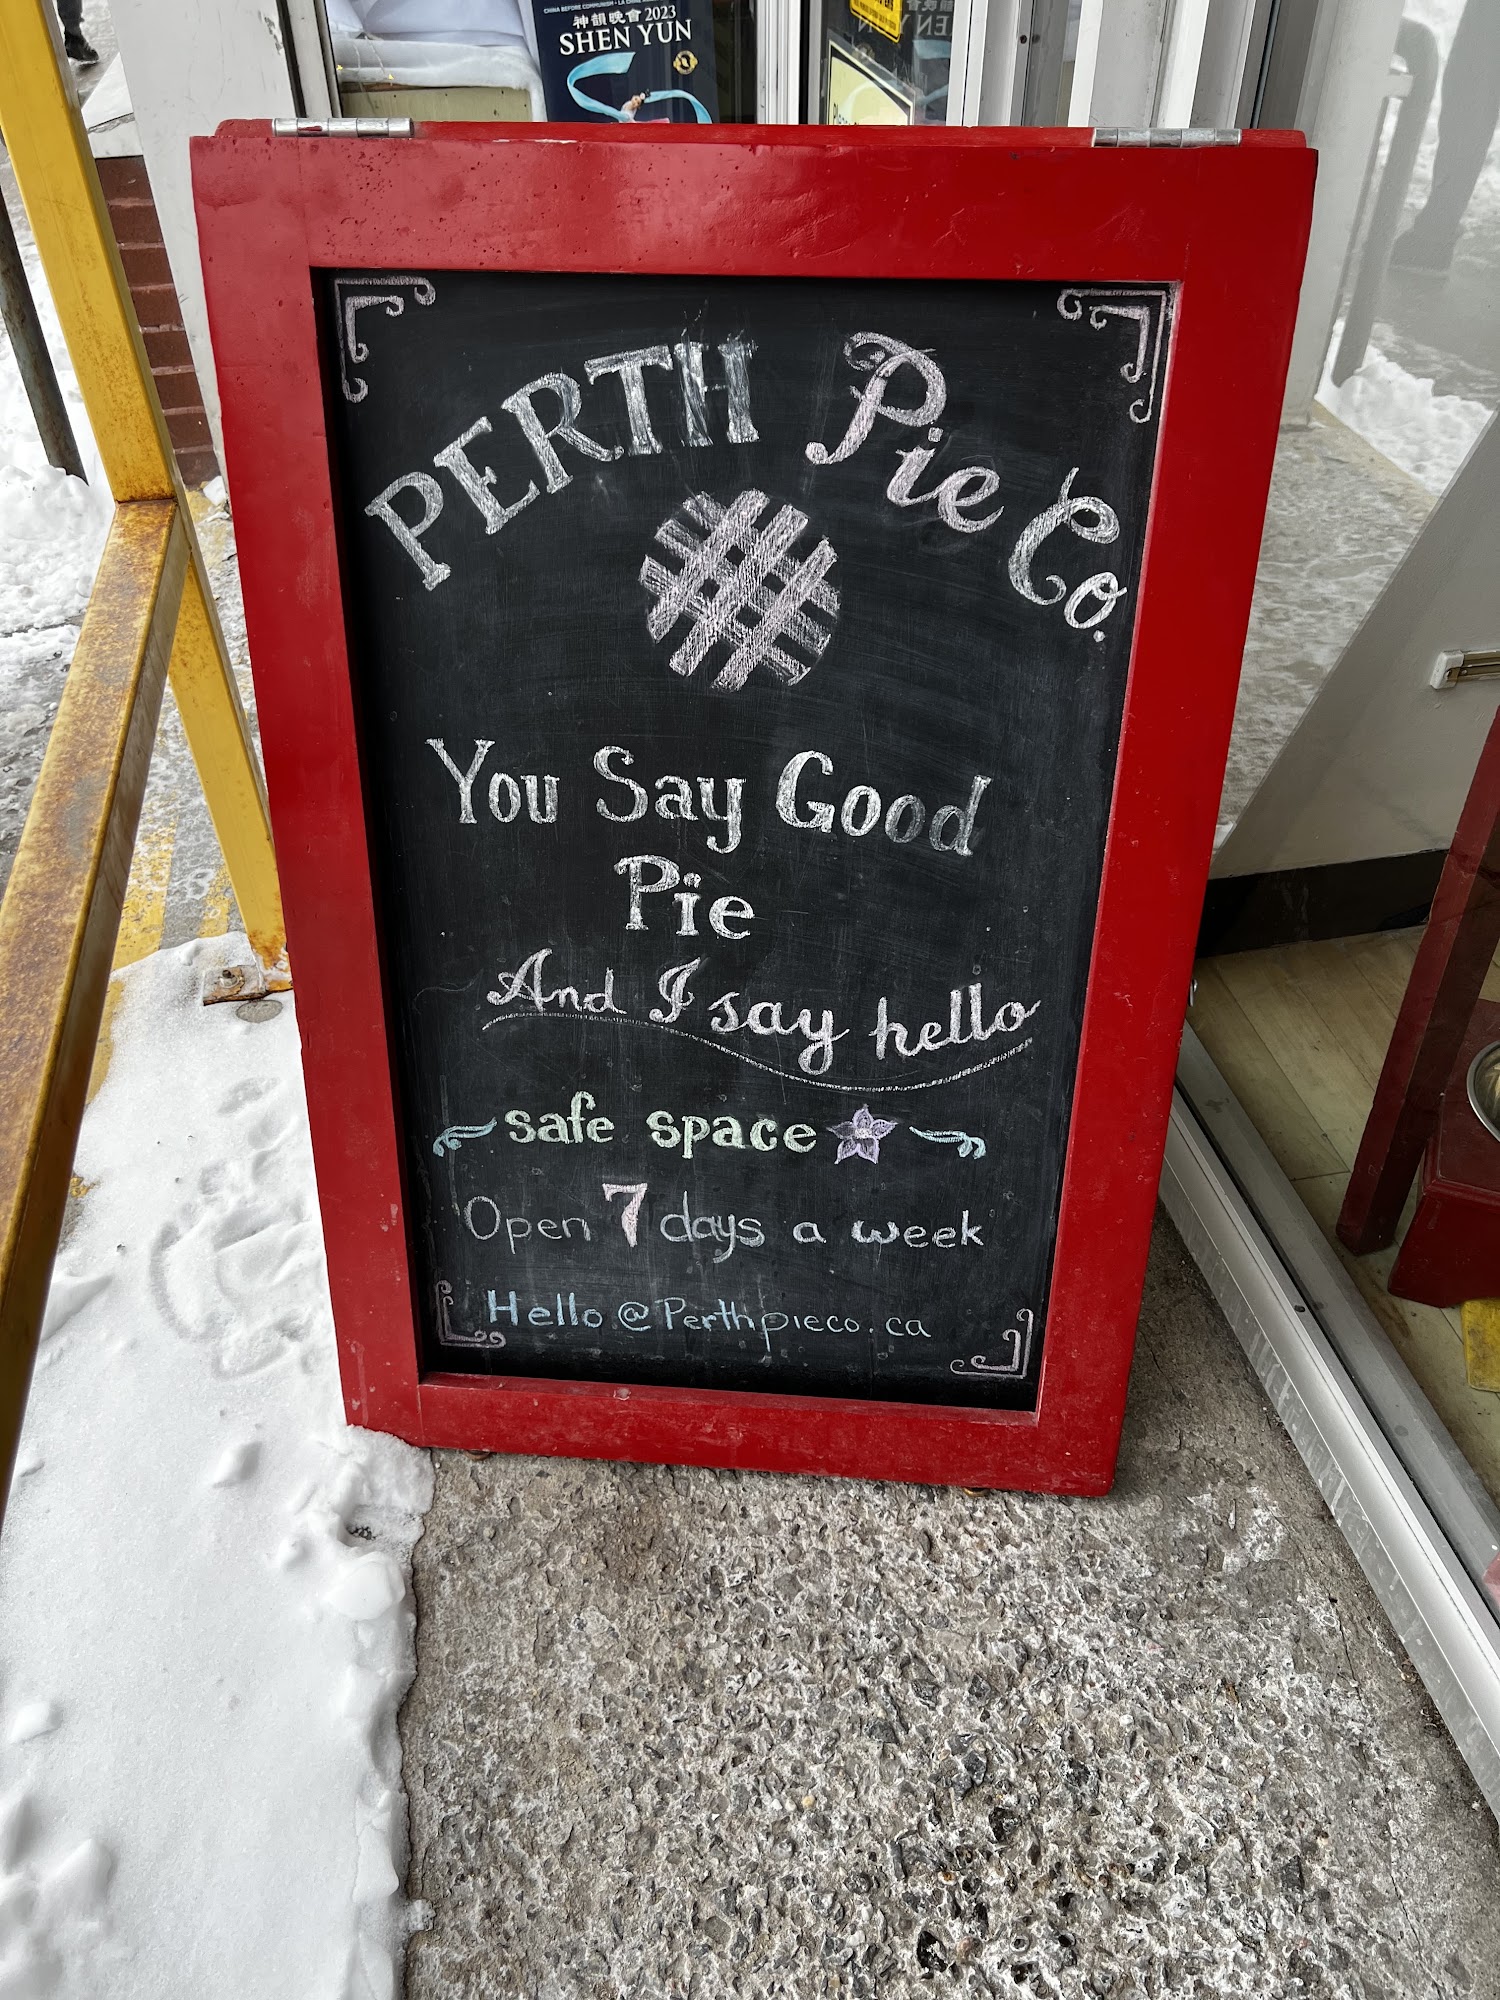 CHINA BEFORE COMMUNISM
神韻晚會 2023
SHEN YUN
PERTH Pie Co.
You Say Good
Pie
And I say hello
safe space
Open 7 days a week
Hello@Perthpieco.ca